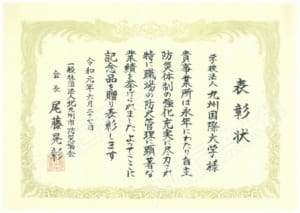 表彰状
学校法人九州国際大学様
貴事業所は永年にわたり自主
防災体制の強化充実に尽力され
特に職場の防火管理に顕著な
業績を挙げられましたよってここに
記念品を贈り表彰します
令和元年六月二十七日
一般社団法人北九州市防災協会
会長 尾藤晃彰